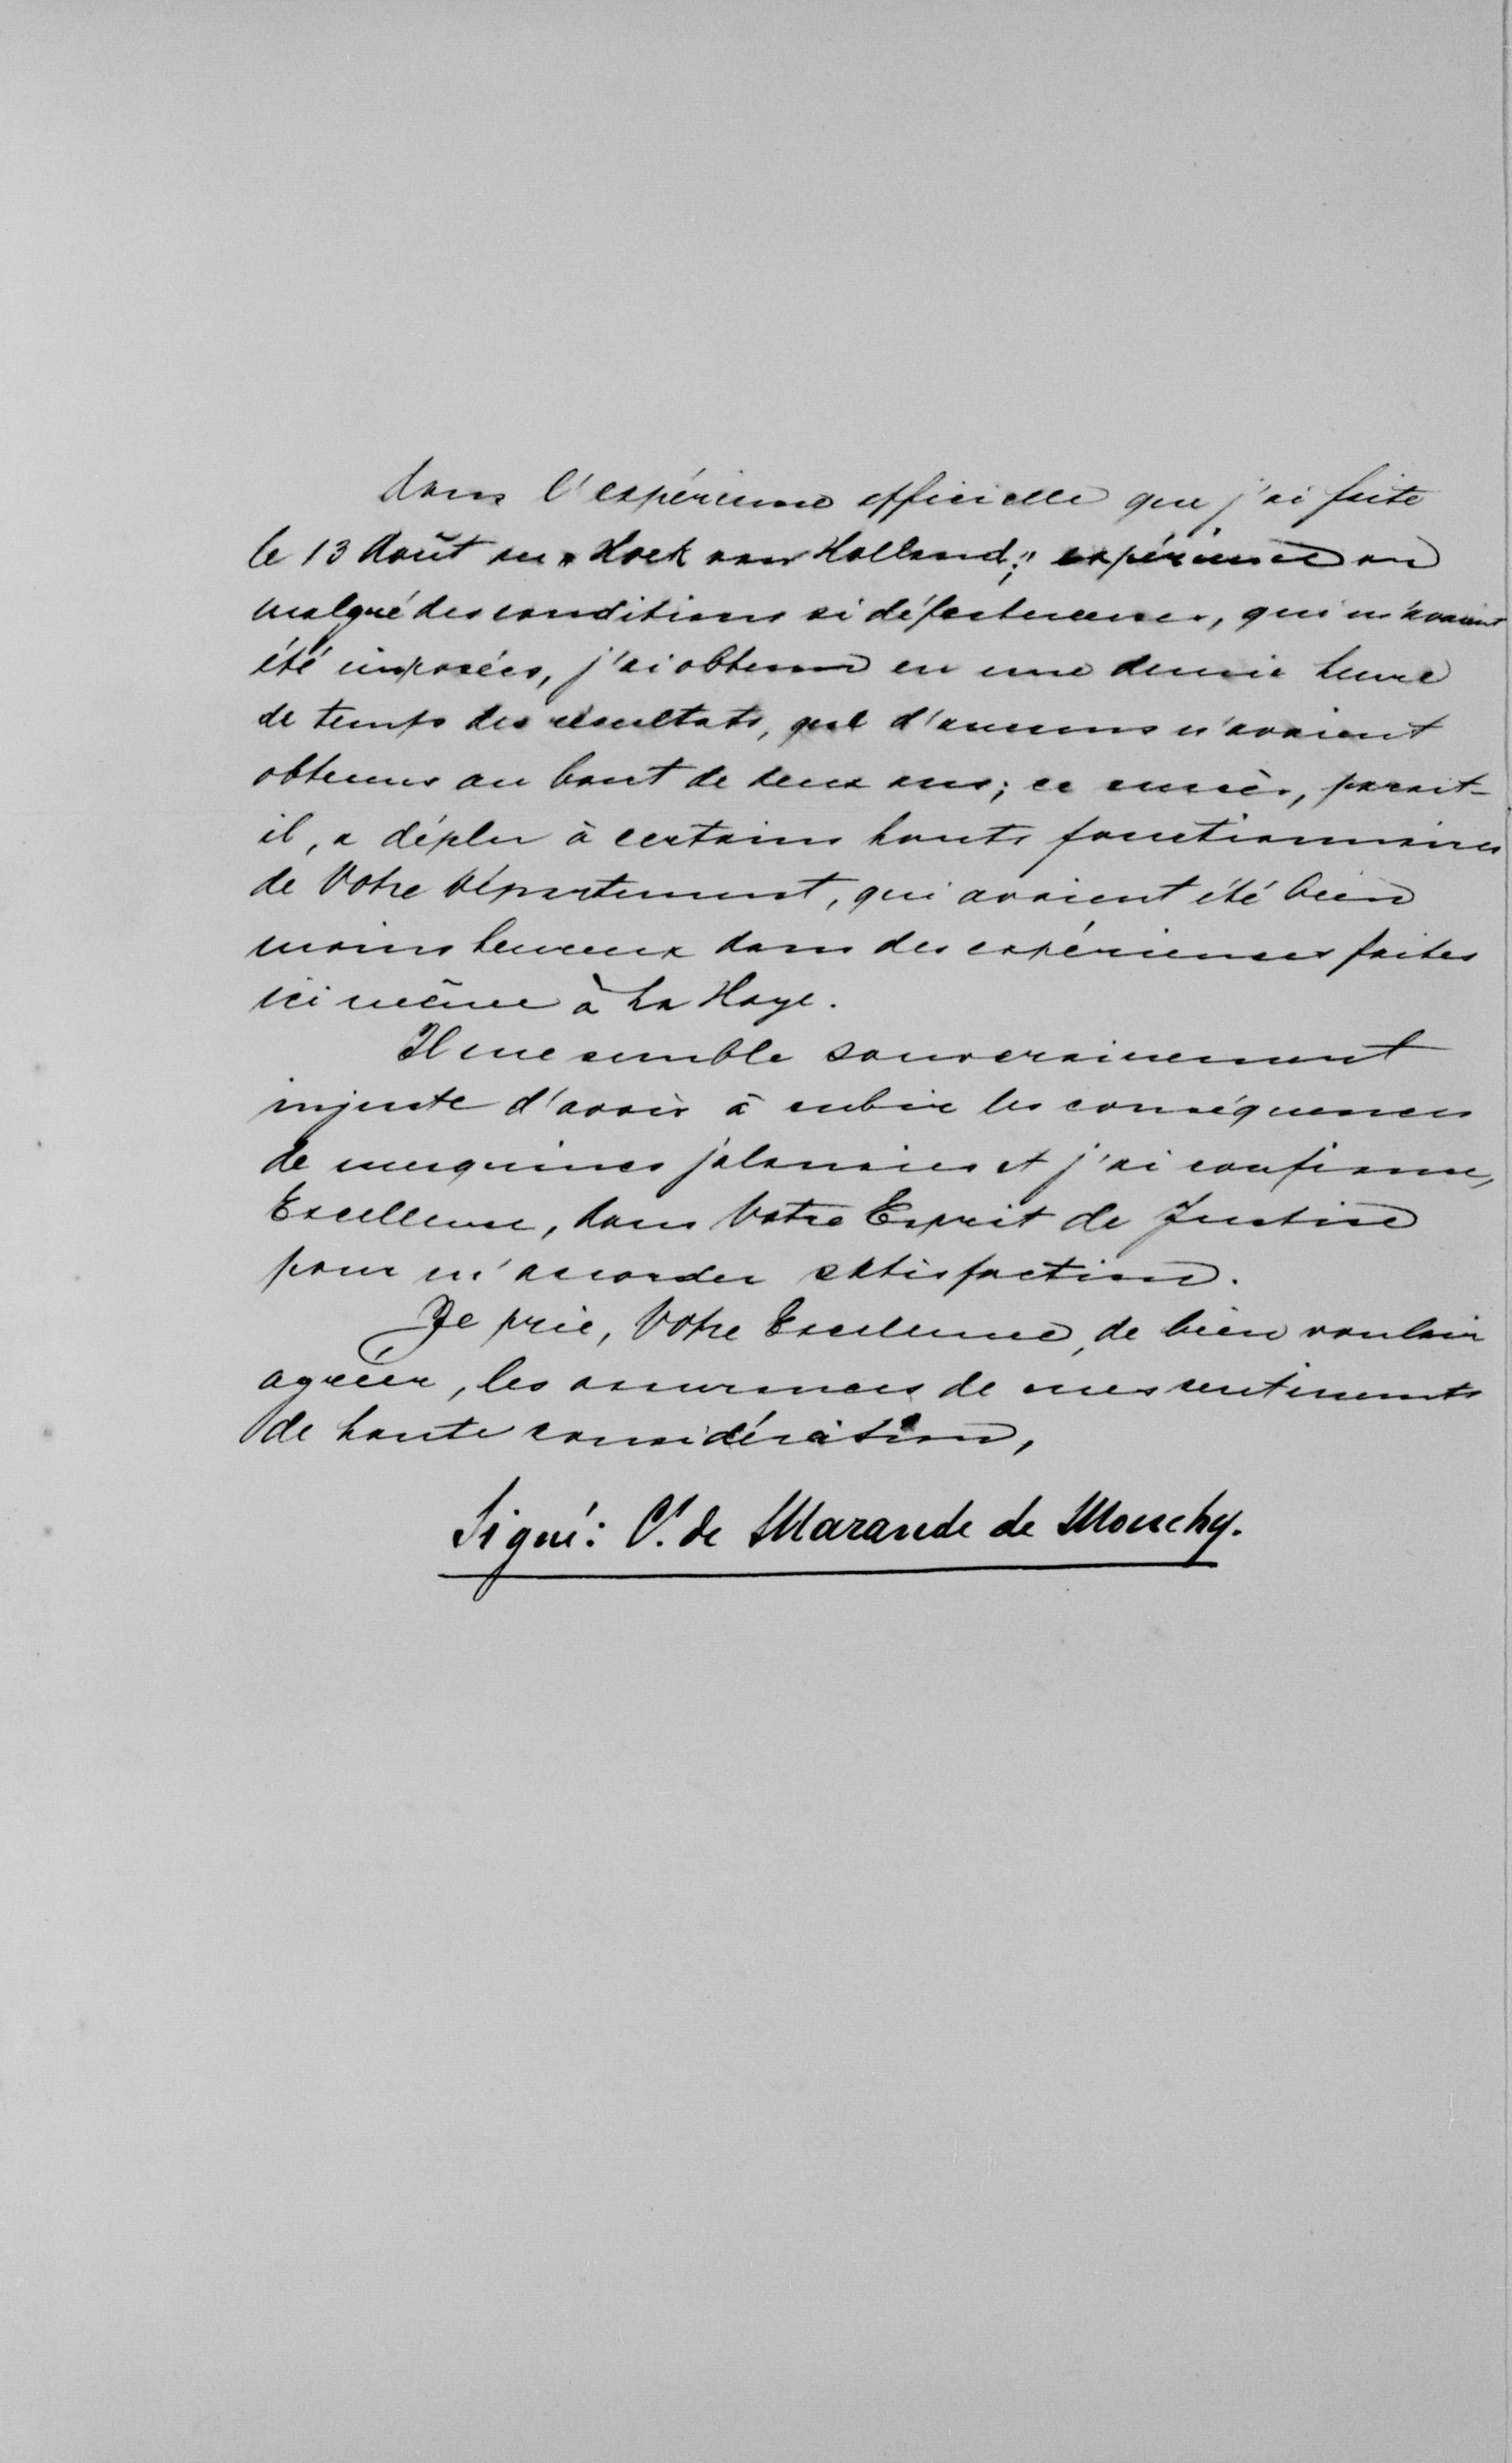 dans l'expérience officielle que j'ai faite
le 13 Août au „Hoek van Holland;" expérience ou
malgré des conditions si défectueuses, qui m'avaient
été imposées, j'ai obtenu en une demie heure
de temps des résultats, que d'aucuns n'avaient
obtenus au bout de deux ans; ce succès, parait-
il, a déplu à certains hauts fonctionnaires
de Votre Département, qui avaient été bien
moins heureux dans des expériences faites
ici même à La Haye.
Il me semble souverainement
injuste d'avoir à subir les conséquences
de mesquines jalousies et j'ai confiance,
Excellence, dans Votre Esprit de Justice
pour m'accorder satisfaction.
Je prie, Votre Excellence, de bien vouloir
agréer, les assurances de mes sentiments
de haute considération,
Signé: V. de Marande de Mouchy.